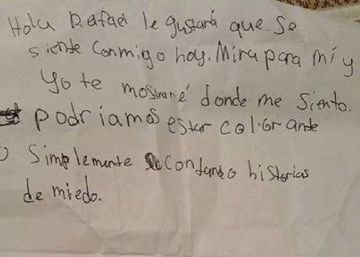 Hola Rafael le gustará que se
siente conmigo hoy. Mira para mí y
Yo te mostraré donde me siento.
podríamos estar colorante
O Simplemente contando historias
de miedo.